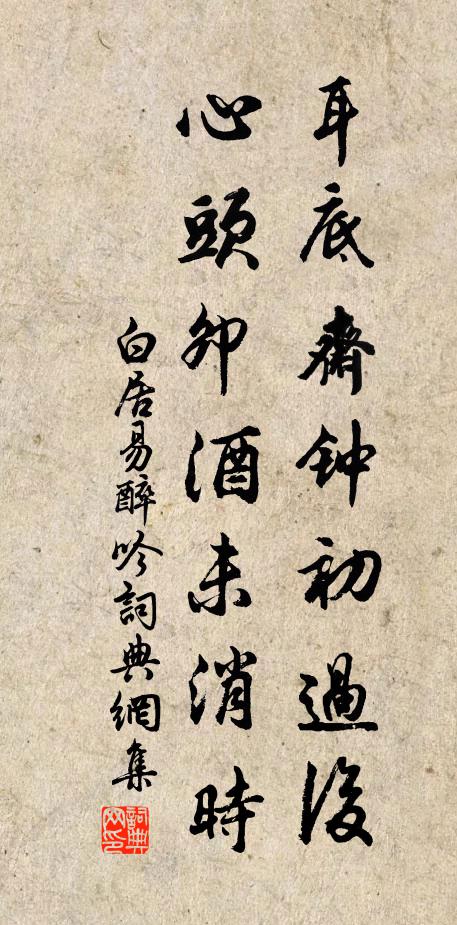 耳底齋钟初過後
心頭卯酒未消時
白居易醉吟詞典網集
詞典网印